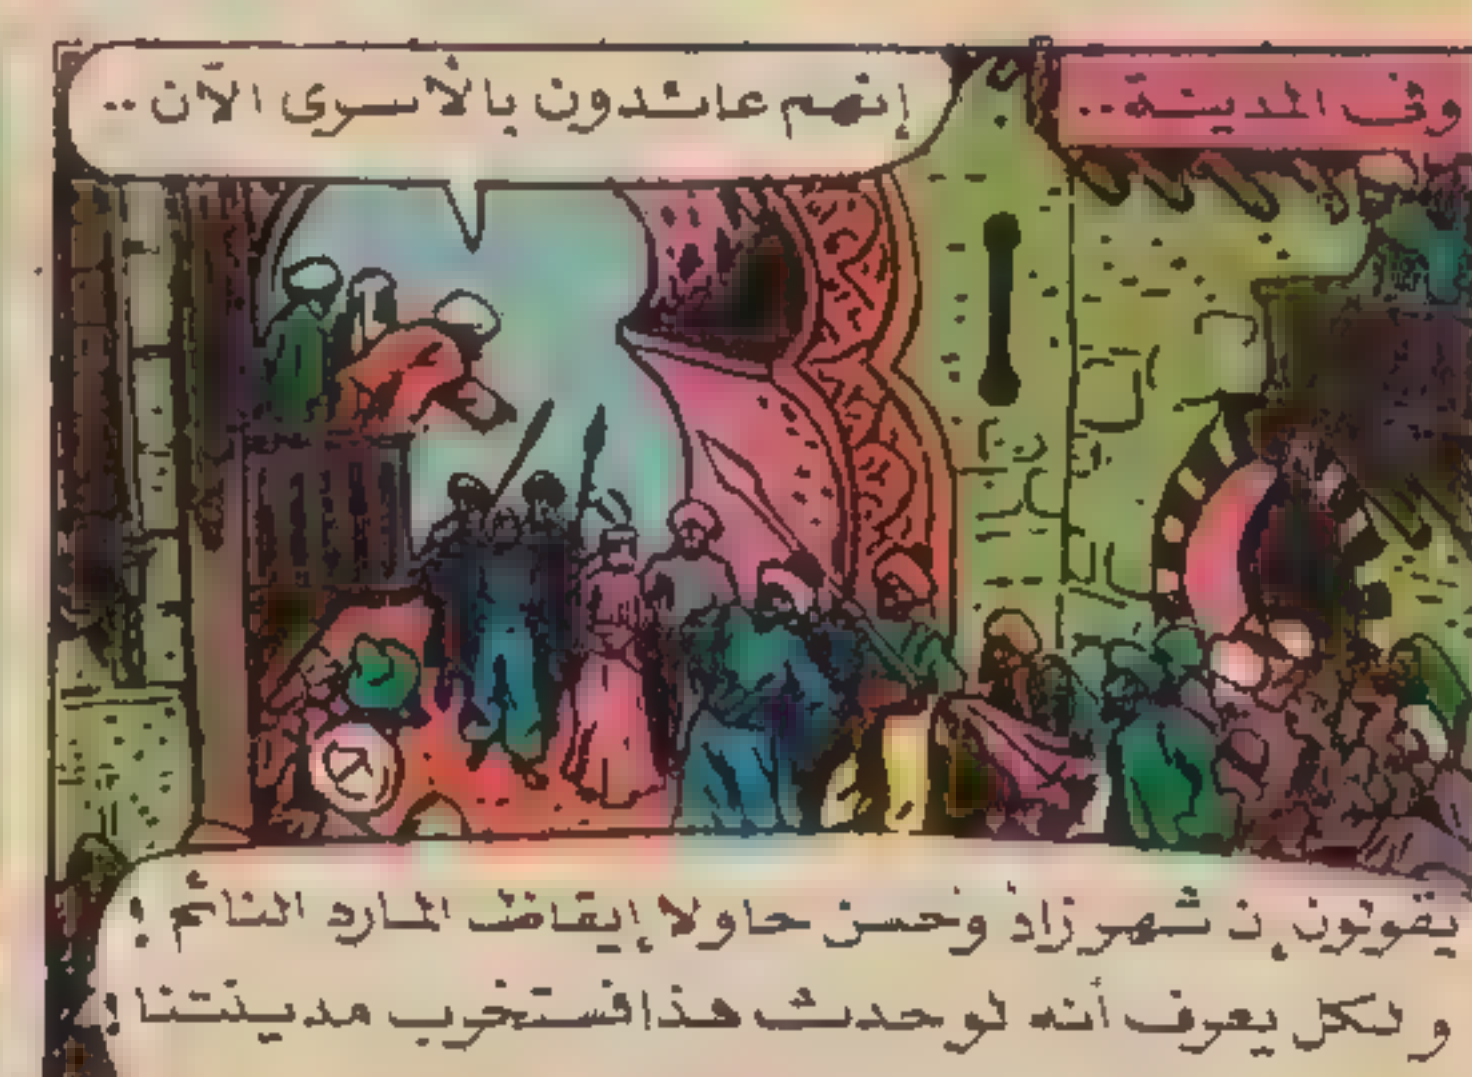 وفى المدينة..
إنهم عائدون بالأسرى الآن..
يقولون إن شهرزاد وحسن حاولا إيقاظ المارد النائم !
والكل يعرف أنه لو حدث هذا فستخرب مدينتنا !